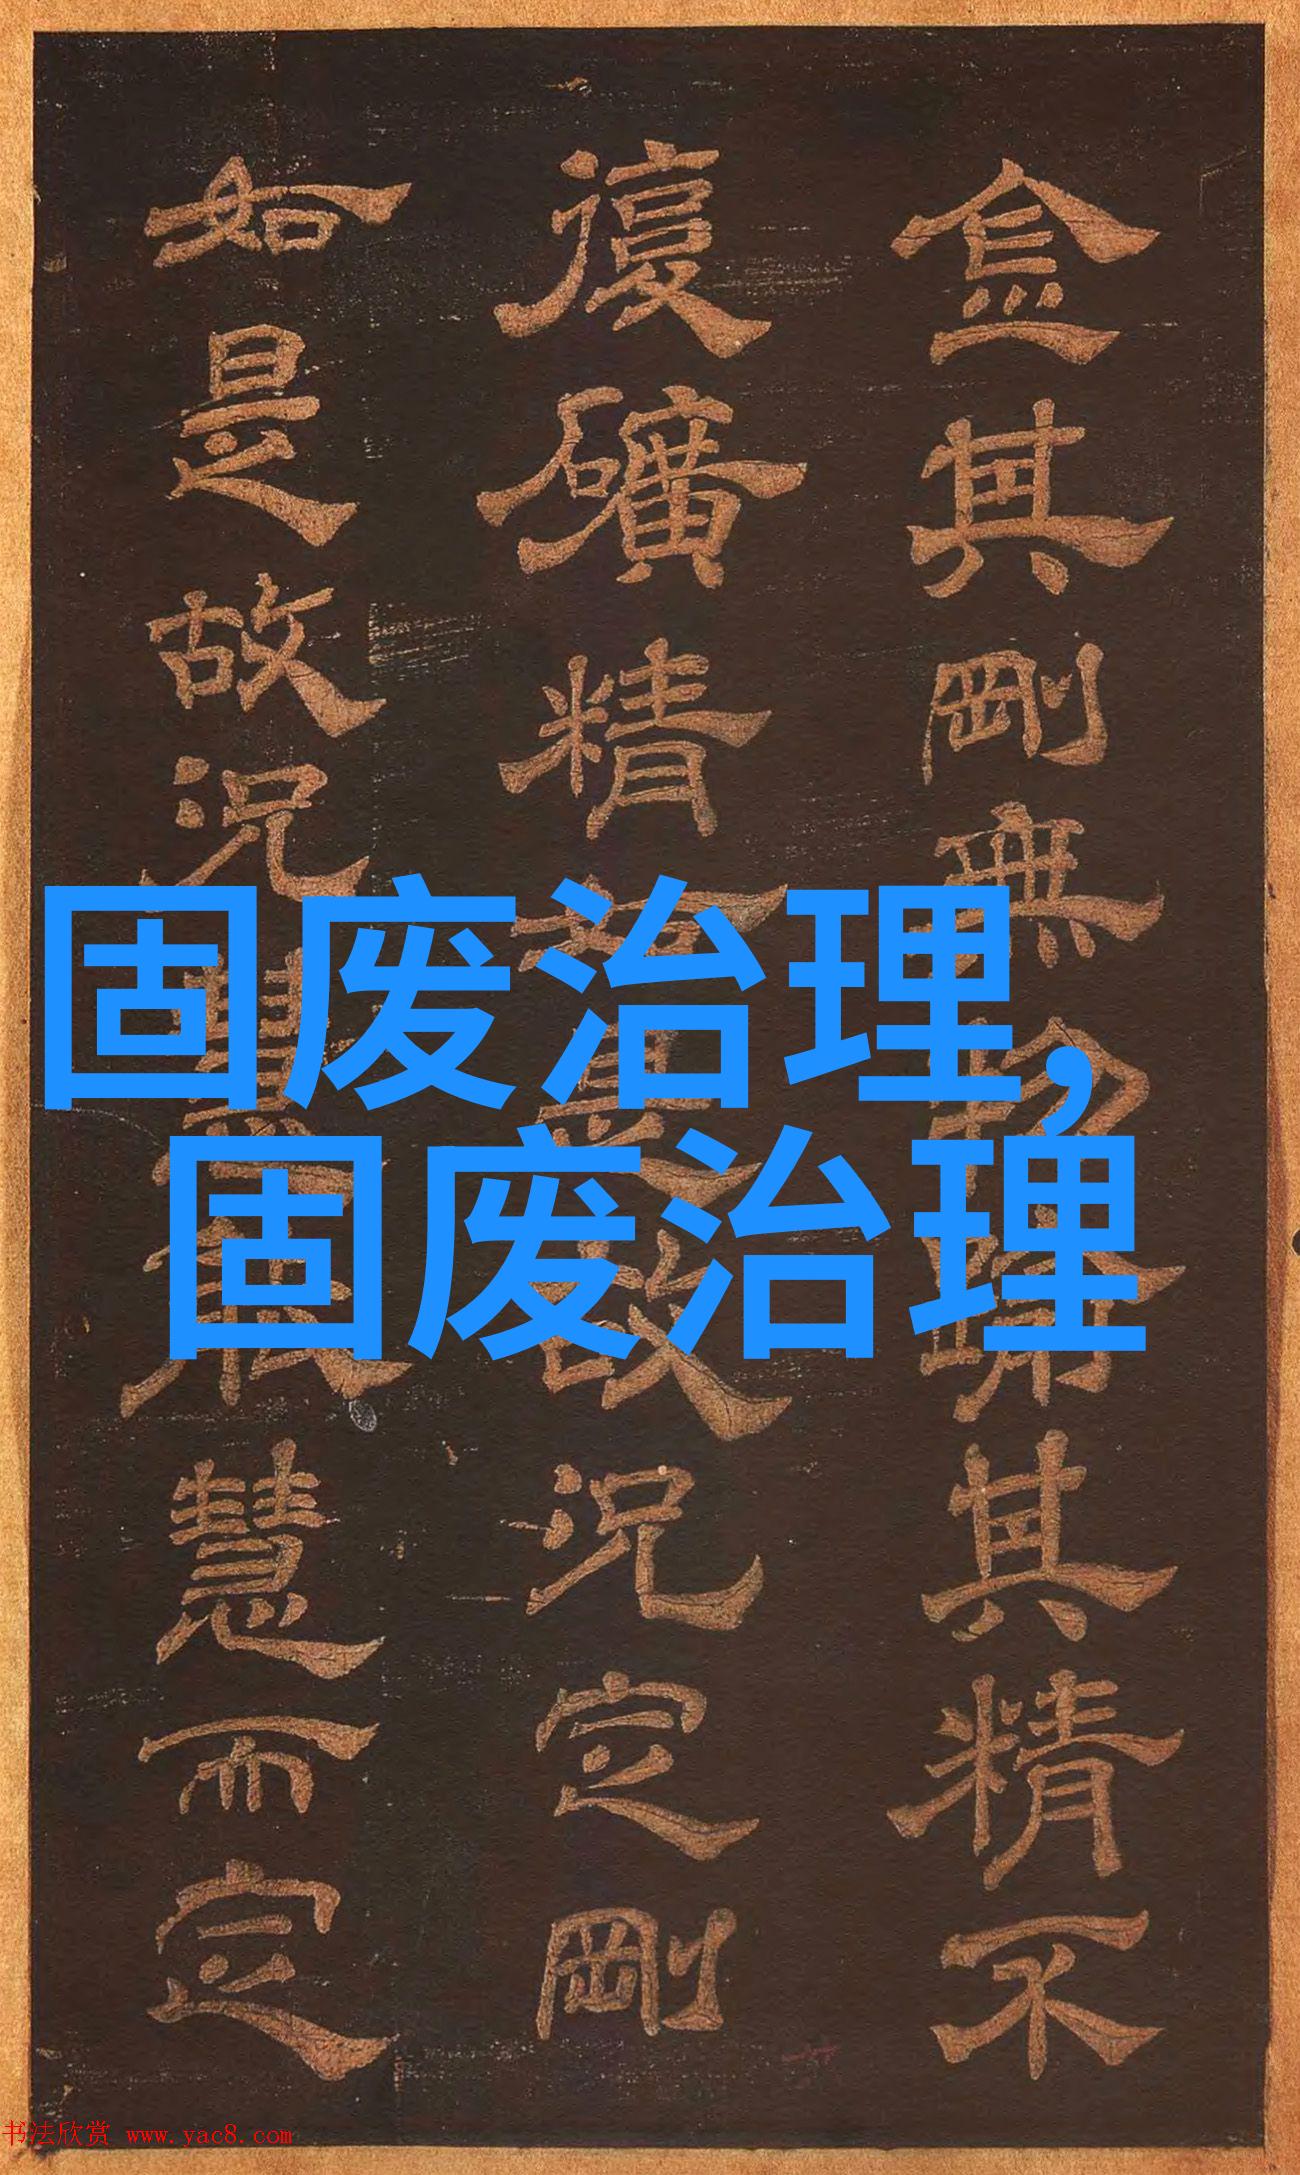 金其剛無其精不
復礦精如是故況定剛
如是故況慧而定
固废治理,
固废治理
书法欣赏 www.yac8.com